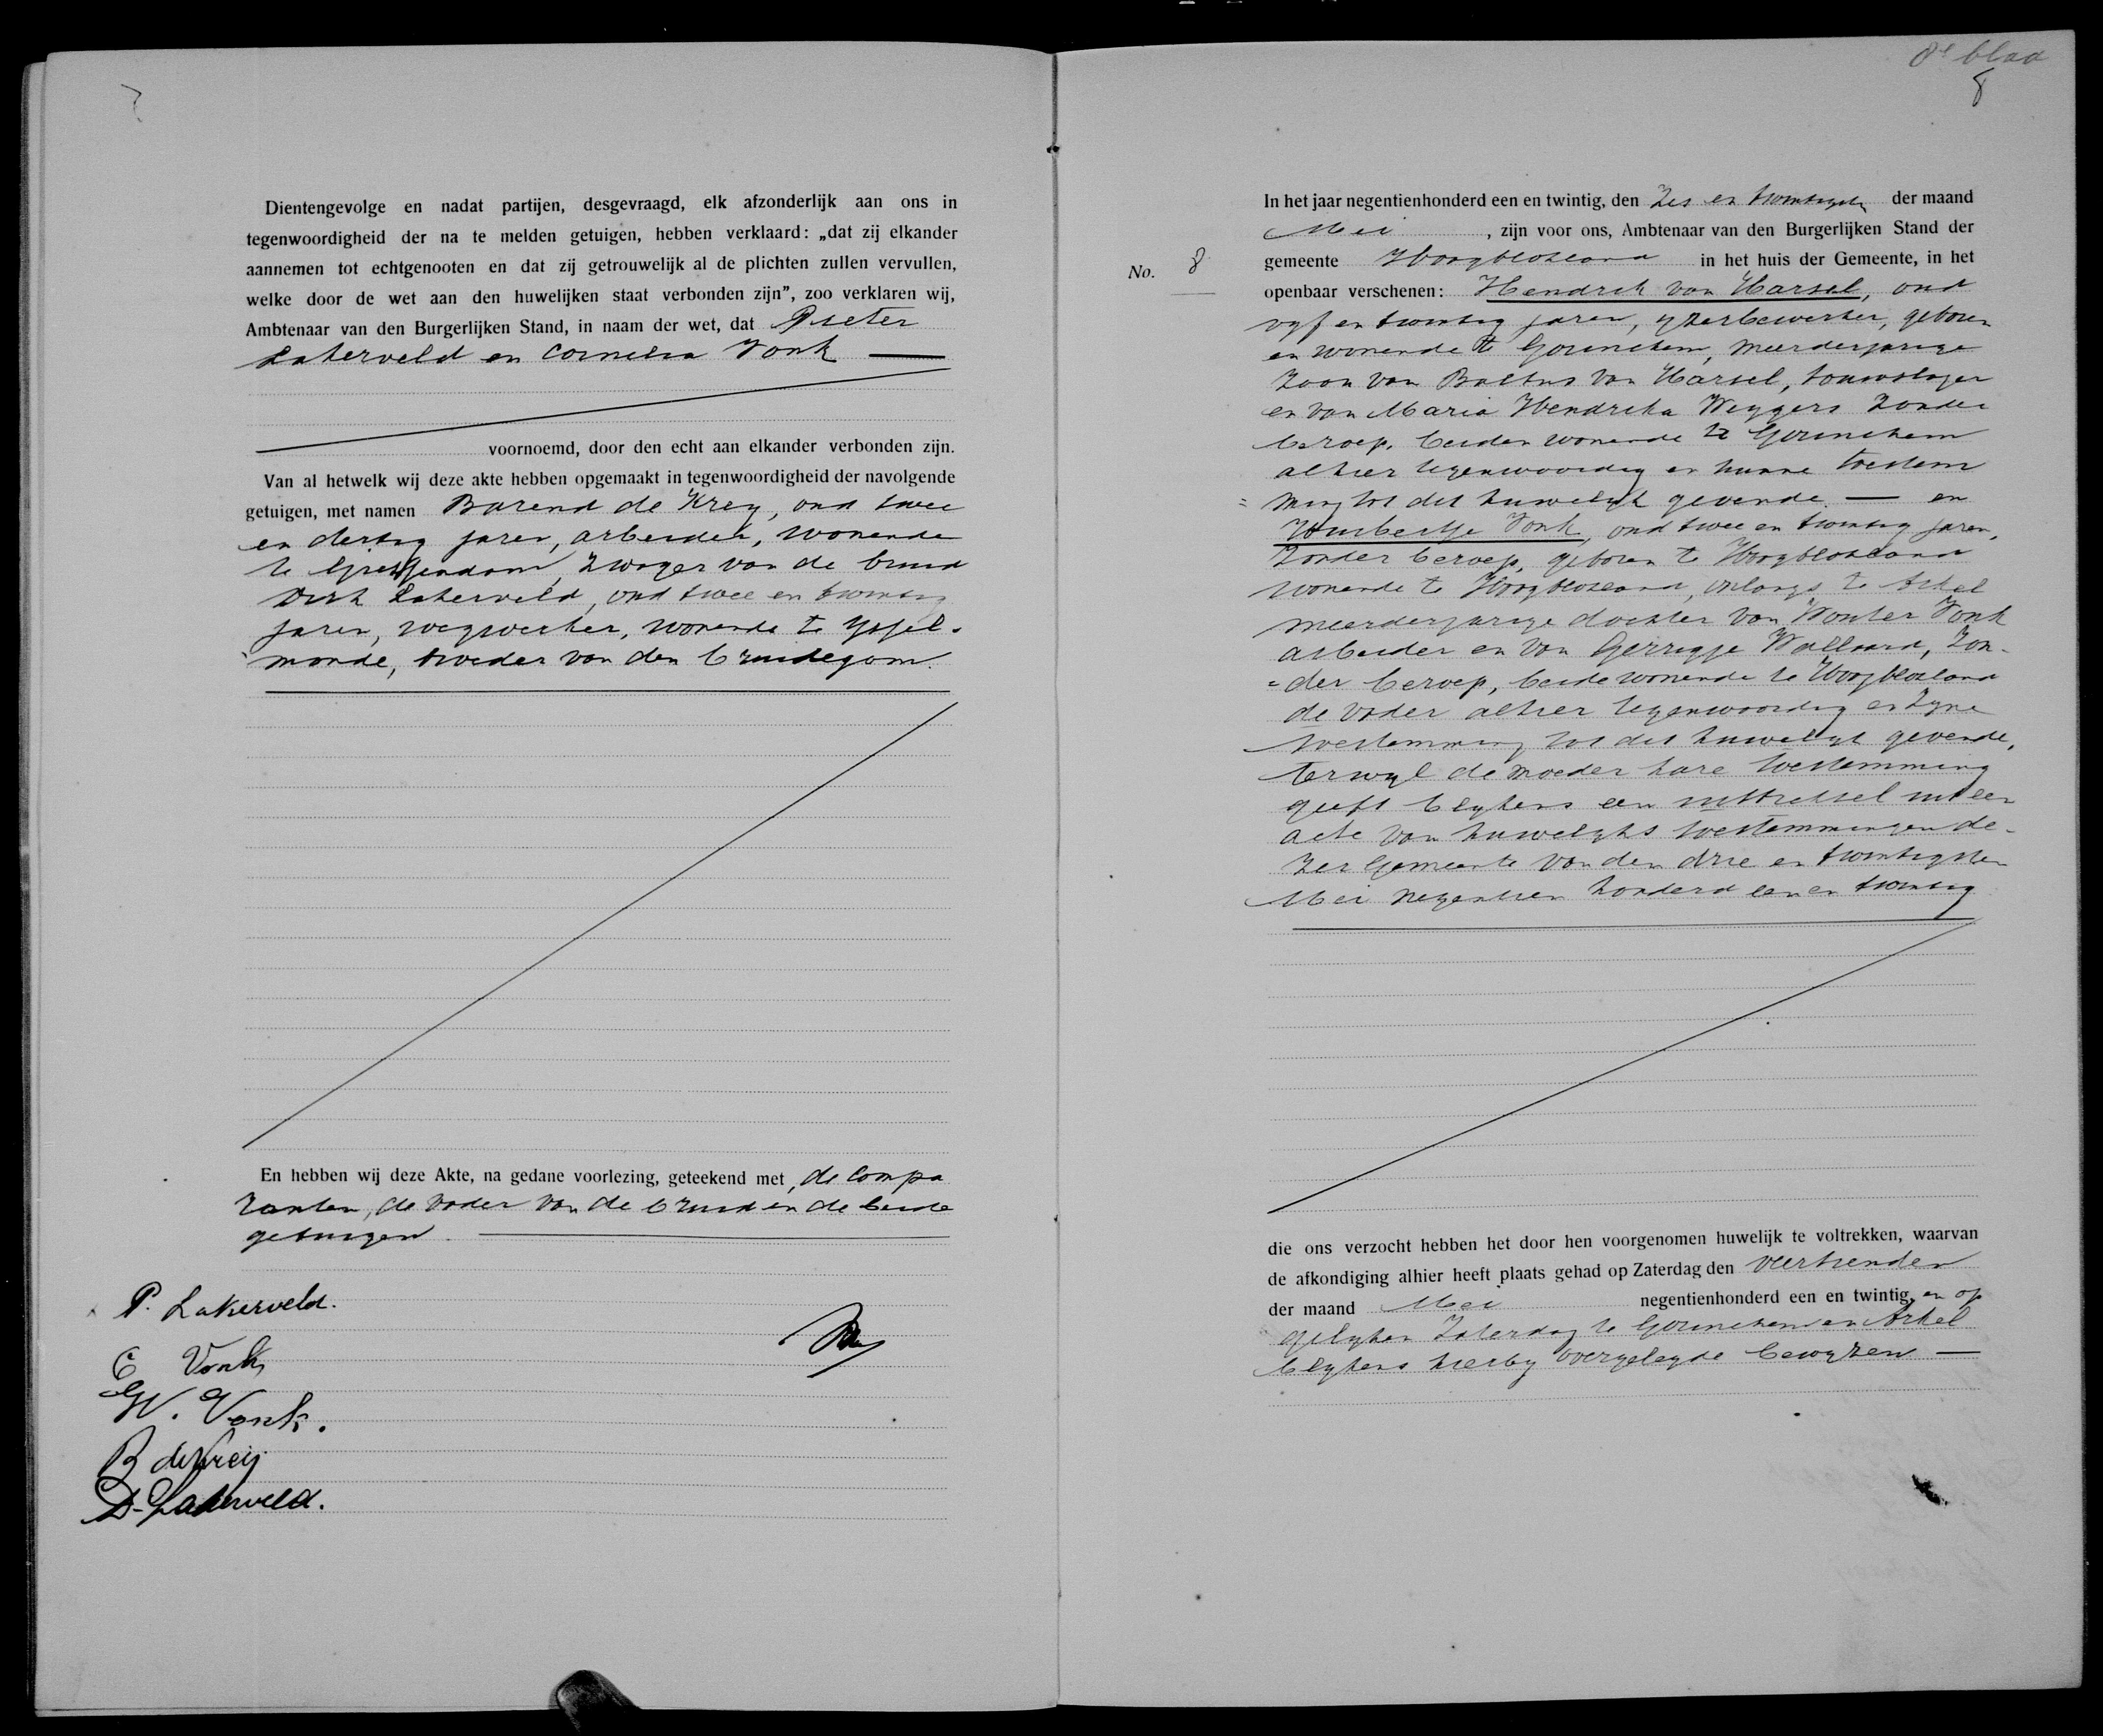 Dientengevolge en nadat partijen, desgevraagd, elk afzonderlijk aan ons in
tegenwoordigheid der na te melden getuigen, hebben verklaard: „dat zij elkander
aannemen tot echtgenooten en dat zij getrouwelijk al de plichten zullen vervullen,
welke door de wet aan den huwelijken staat verbonden zijn”, zoo verklaren wij,
Ambtenaar van den Burgerlijken Stand, in naam der wet, dat Pieter
Lakerveld en Cornelia Vonk
voornoemd, door den echt aan elkander verbonden zijn.
Van al hetwelk wij deze akte hebben opgemaakt in tegenwoordigheid der navolgende
getuigen, met namen Barend de Krey, oud twee
en dertig jaren, arbeider, wonende
te Giessendam, zwager van de bruid
Dirk Lakerveld, oud twee en twintig
jaren, wegwerker, wonende te Yssel-
monde, broeder van den bruidegom.
En hebben wij deze Akte, na gedane voorlezing, geteekend met, de compa
ranten, de vader van de bruid en de beide
getuigen.
P. Lakerveld.
C Vonk
W. Vonk.
B de Kreij
D. Lakerveld.
8e blad
8
No. 8
In het jaar negentienhonderd een en twintig, den zes en twintigsten der maand
Mei, zijn voor ons, Ambtenaar van den Burgerlijken Stand der
gemeente Hoogblokland in het huis der Gemeente, in het
openbaar verschenen: Hendrik van Harsel, oud
vyf en twintig jaren, yzerbewerker, geboren
en wonende te Gorinchem, meerderjarige
zoon van Baltus van Harsel, touwslager
en van Maria Hendrika Weygers zonder
beroep, beiden wonende te Gorinchem
alhier tegenwoordig en hunne toestem
= ming tot dit huwelyk gevende. — en
Huibertje Vonk, oud twee en twintig jaren,
zonder beroep, geboren te Hoogblokland
wonende te Hoogblokland, onlangs te Arkel
meerderjarige dochter van Wouter Vonk
arbeider en van Gerrigje Wallaard, zon-
= der beroep, beide wonende te Hoogblokland
de vader alhier tegenwoordig en zyne
toestemming tot dit huwelyk gevende,
terwyl de moeder hare toestemming
geeft blykens een uittreksel uit een
acte van huwelyks toestemmingen de-
zer Gemeente van den drie en twintigsten
Mei negentien honderd een en twintig
die ons verzocht hebben het door hen voorgenomen huwelijk te voltrekken, waarvan
de afkondiging alhier heeft plaats gehad op Zaterdag den veertienden
der maand Mei negentienhonderd een en twintig, en op
gelyken Zaterdag te Gorinchem en Arkel
blykens hierby overgelegde bewyzen —